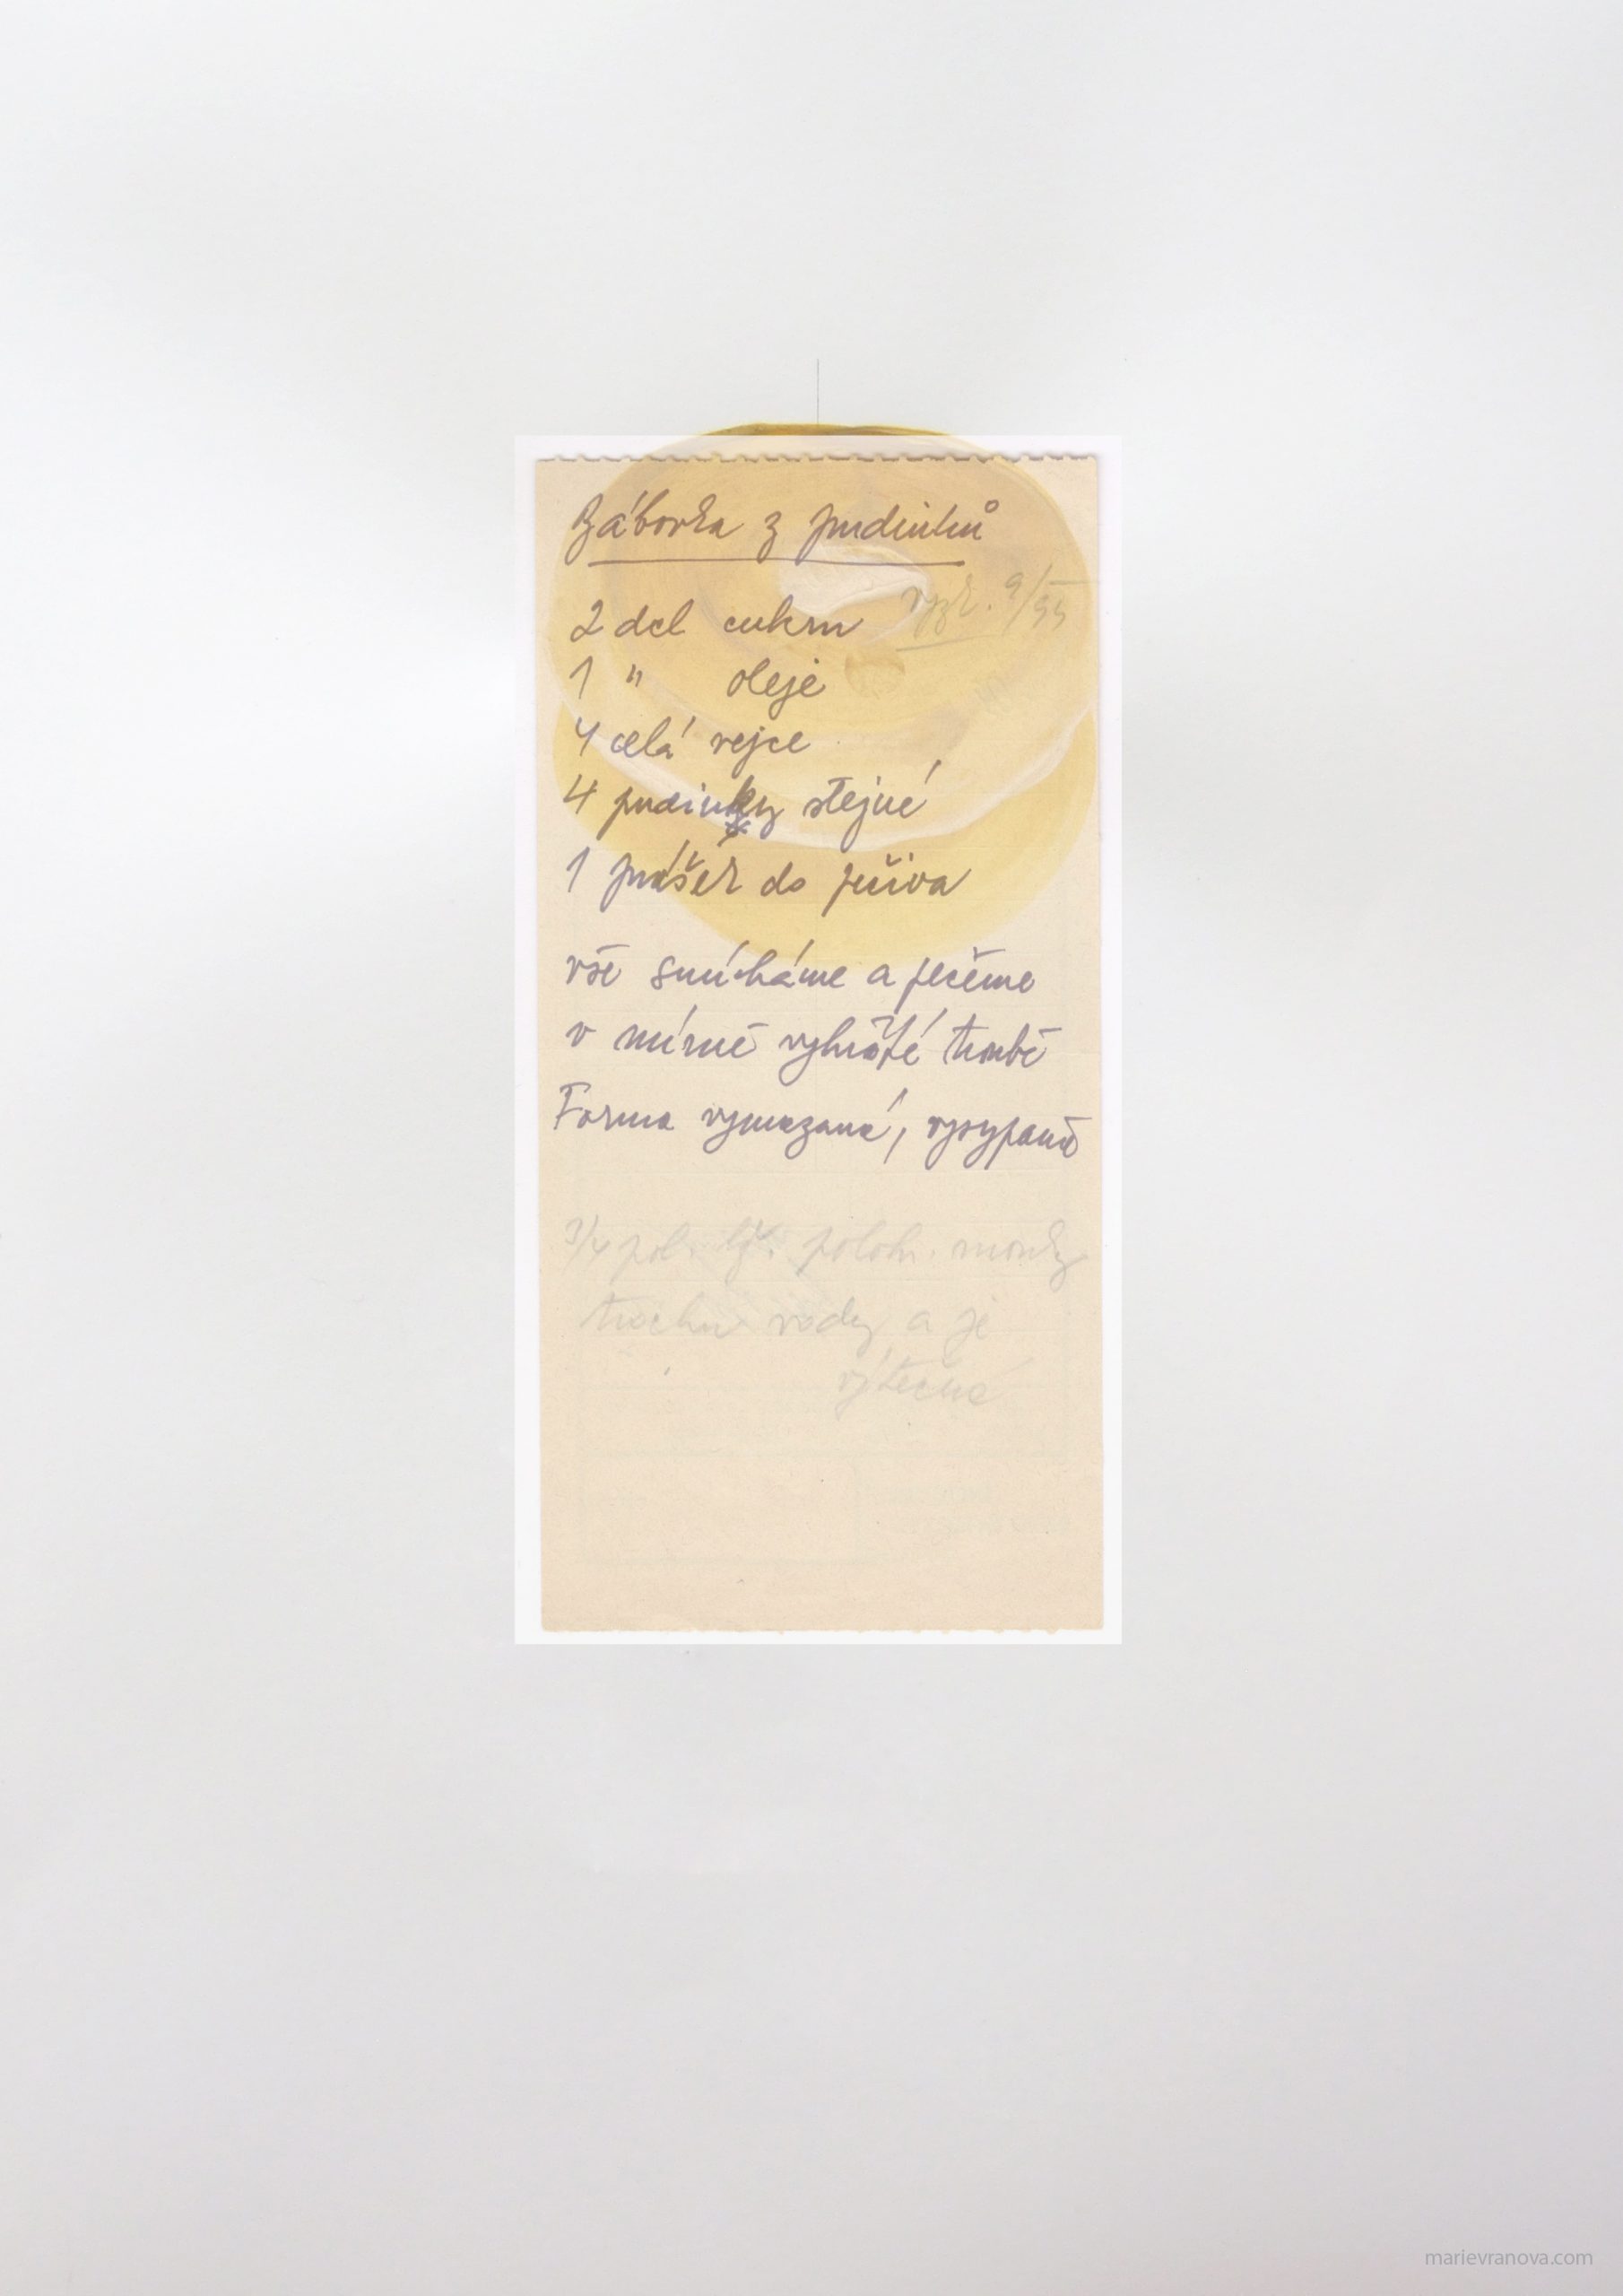 Bábovka z pudinků
vyzk. 9/99
2 dcl cukru
1 " oleje
4 celá vejce
4 pudinky stejné
1 prášek do pečiva
vše smícháme a pečeme
v mírně vyhřáté troubě
Forma vymazaná, vysypaná
3/4 pol. lž. poloh. mouky
trochu vody a je
výtečná
marievranova.com